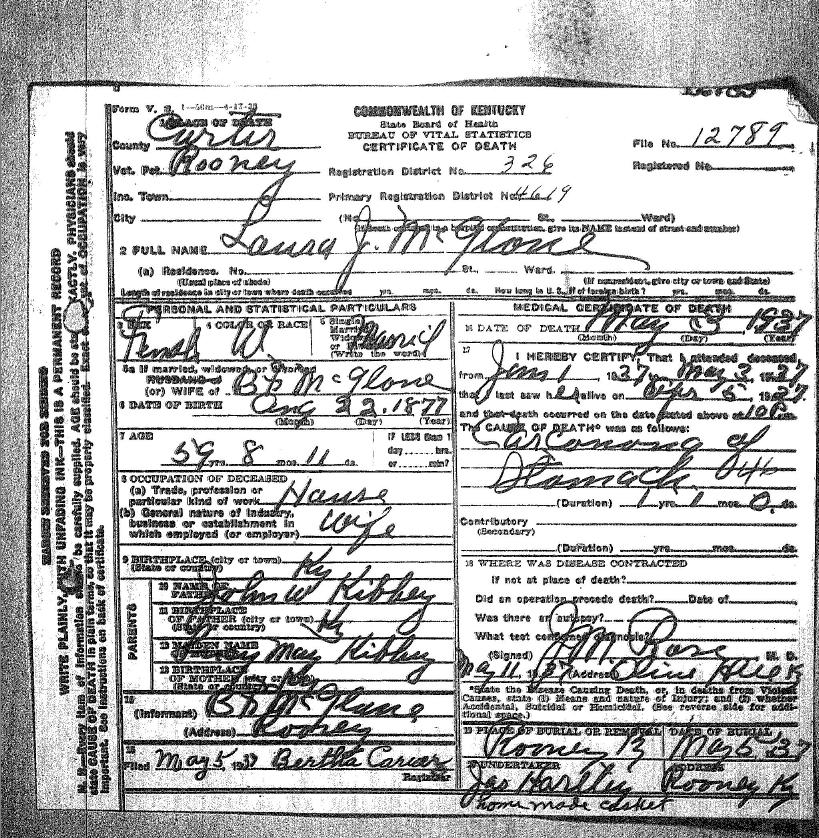 Form V. S. 1
COMMONWEALTH OF KENTUCKY
State Board of Health
BUREAU OF VITAL STATISTICS
CERTIFICATE OF DEATH
1 PLACE OF DEATH
County Carter
File No. 12789
Vot. Pct. Rooney
Registration District No. 326
Registered No.
Inc. Town
Primary Registration District No. 4619
City (No. St., Ward)
2 FULL NAME Laura J. McGlone
(a) Residence. No. St., Ward.
(Usual place of abode) (If nonresident, give city or town and State)
Length of residence in city or town where death occurred yrs. mos. ds. How long in U. S., if of foreign birth? yrs. mos. ds.
PERSONAL AND STATISTICAL PARTICULARS
3 SEX 4 COLOR OR RACE 5 Single
Female W
(Write the word)
5a If married, widowed, or divorced
HUSBAND of
(or) WIFE of B F McGlone
6 DATE OF BIRTH Aug 22. 1877
(Month) (Day) (Year)
7 AGE IF LESS than 1
59 yrs. 8 mos. 11 ds.
day hrs.
or min?
8 OCCUPATION OF DECEASED
(a) Trade, profession or
particular kind of work House
(b) General nature of industry,
business or establishment in
which employed (or employer) Wife
9 BIRTHPLACE (city or town)
(State or country) Ky
PARENTS
10 NAME OF
FATHER John W Kibbey
11 BIRTHPLACE
OF FATHER (city or town)
(State or country) Ky
12 MAIDEN NAME
May Kibbey
13 BIRTHPLACE
OF MOTHER (city or town)
(State or country)
14
(Informant) B F McGlone
(Address) Rooney
15
Filed May 5, 1937 Bertha Carver
Registrar
MEDICAL CERTIFICATE OF DEATH
16 DATE OF DEATH May 3 1937
(Month) (Day) (Year)
17
I HEREBY CERTIFY, That I attended deceased
from Jan 1 1937 to May 3, 1937
that I last saw h alive on Apr 5 1937
and that death occurred on the date stated above at 10 P m.
The CAUSE OF DEATH* was as follows:
Carconoma of
Stomach
(Duration) 1 yrs. 1 mos. 0 ds.
Contributory
(Secondary)
(Duration) yrs. mos. ds.
18 WHERE WAS DISEASE CONTRACTED
if not at place of death?
Did an operation precede death? Date of
Was there an autopsy?
What test confirmed diagnosis?
(Signed) J. M. Rose M. D.
May 11, 1937 (Address) Olive Hill Ky
*State the Disease Causing Death, or, in deaths from Violent
Causes, state (1) Means and nature of Injury; and (2) whether
Accidental, Suicidal or Homicidal. (See reverse side for addi-
tional space.)
19 PLACE OF BURIAL OR REMOVAL DATE OF BURIAL
Rooney Ky May 5, 37
20 UNDERTAKER ADDRESS
Jas Hartley Rooney Ky
home made casket
MARGIN RESERVED FOR BINDING
WRITE PLAINLY, WITH UNFADING INK—THIS IS A PERMANENT RECORD
N. B.—Every item of information should be carefully supplied. AGE should be stated EXACTLY. PHYSICIANS should
state CAUSE OF DEATH in plain terms, so that it may be properly classified. Exact statement of OCCUPATION is very
important. See instructions on back of certificate.